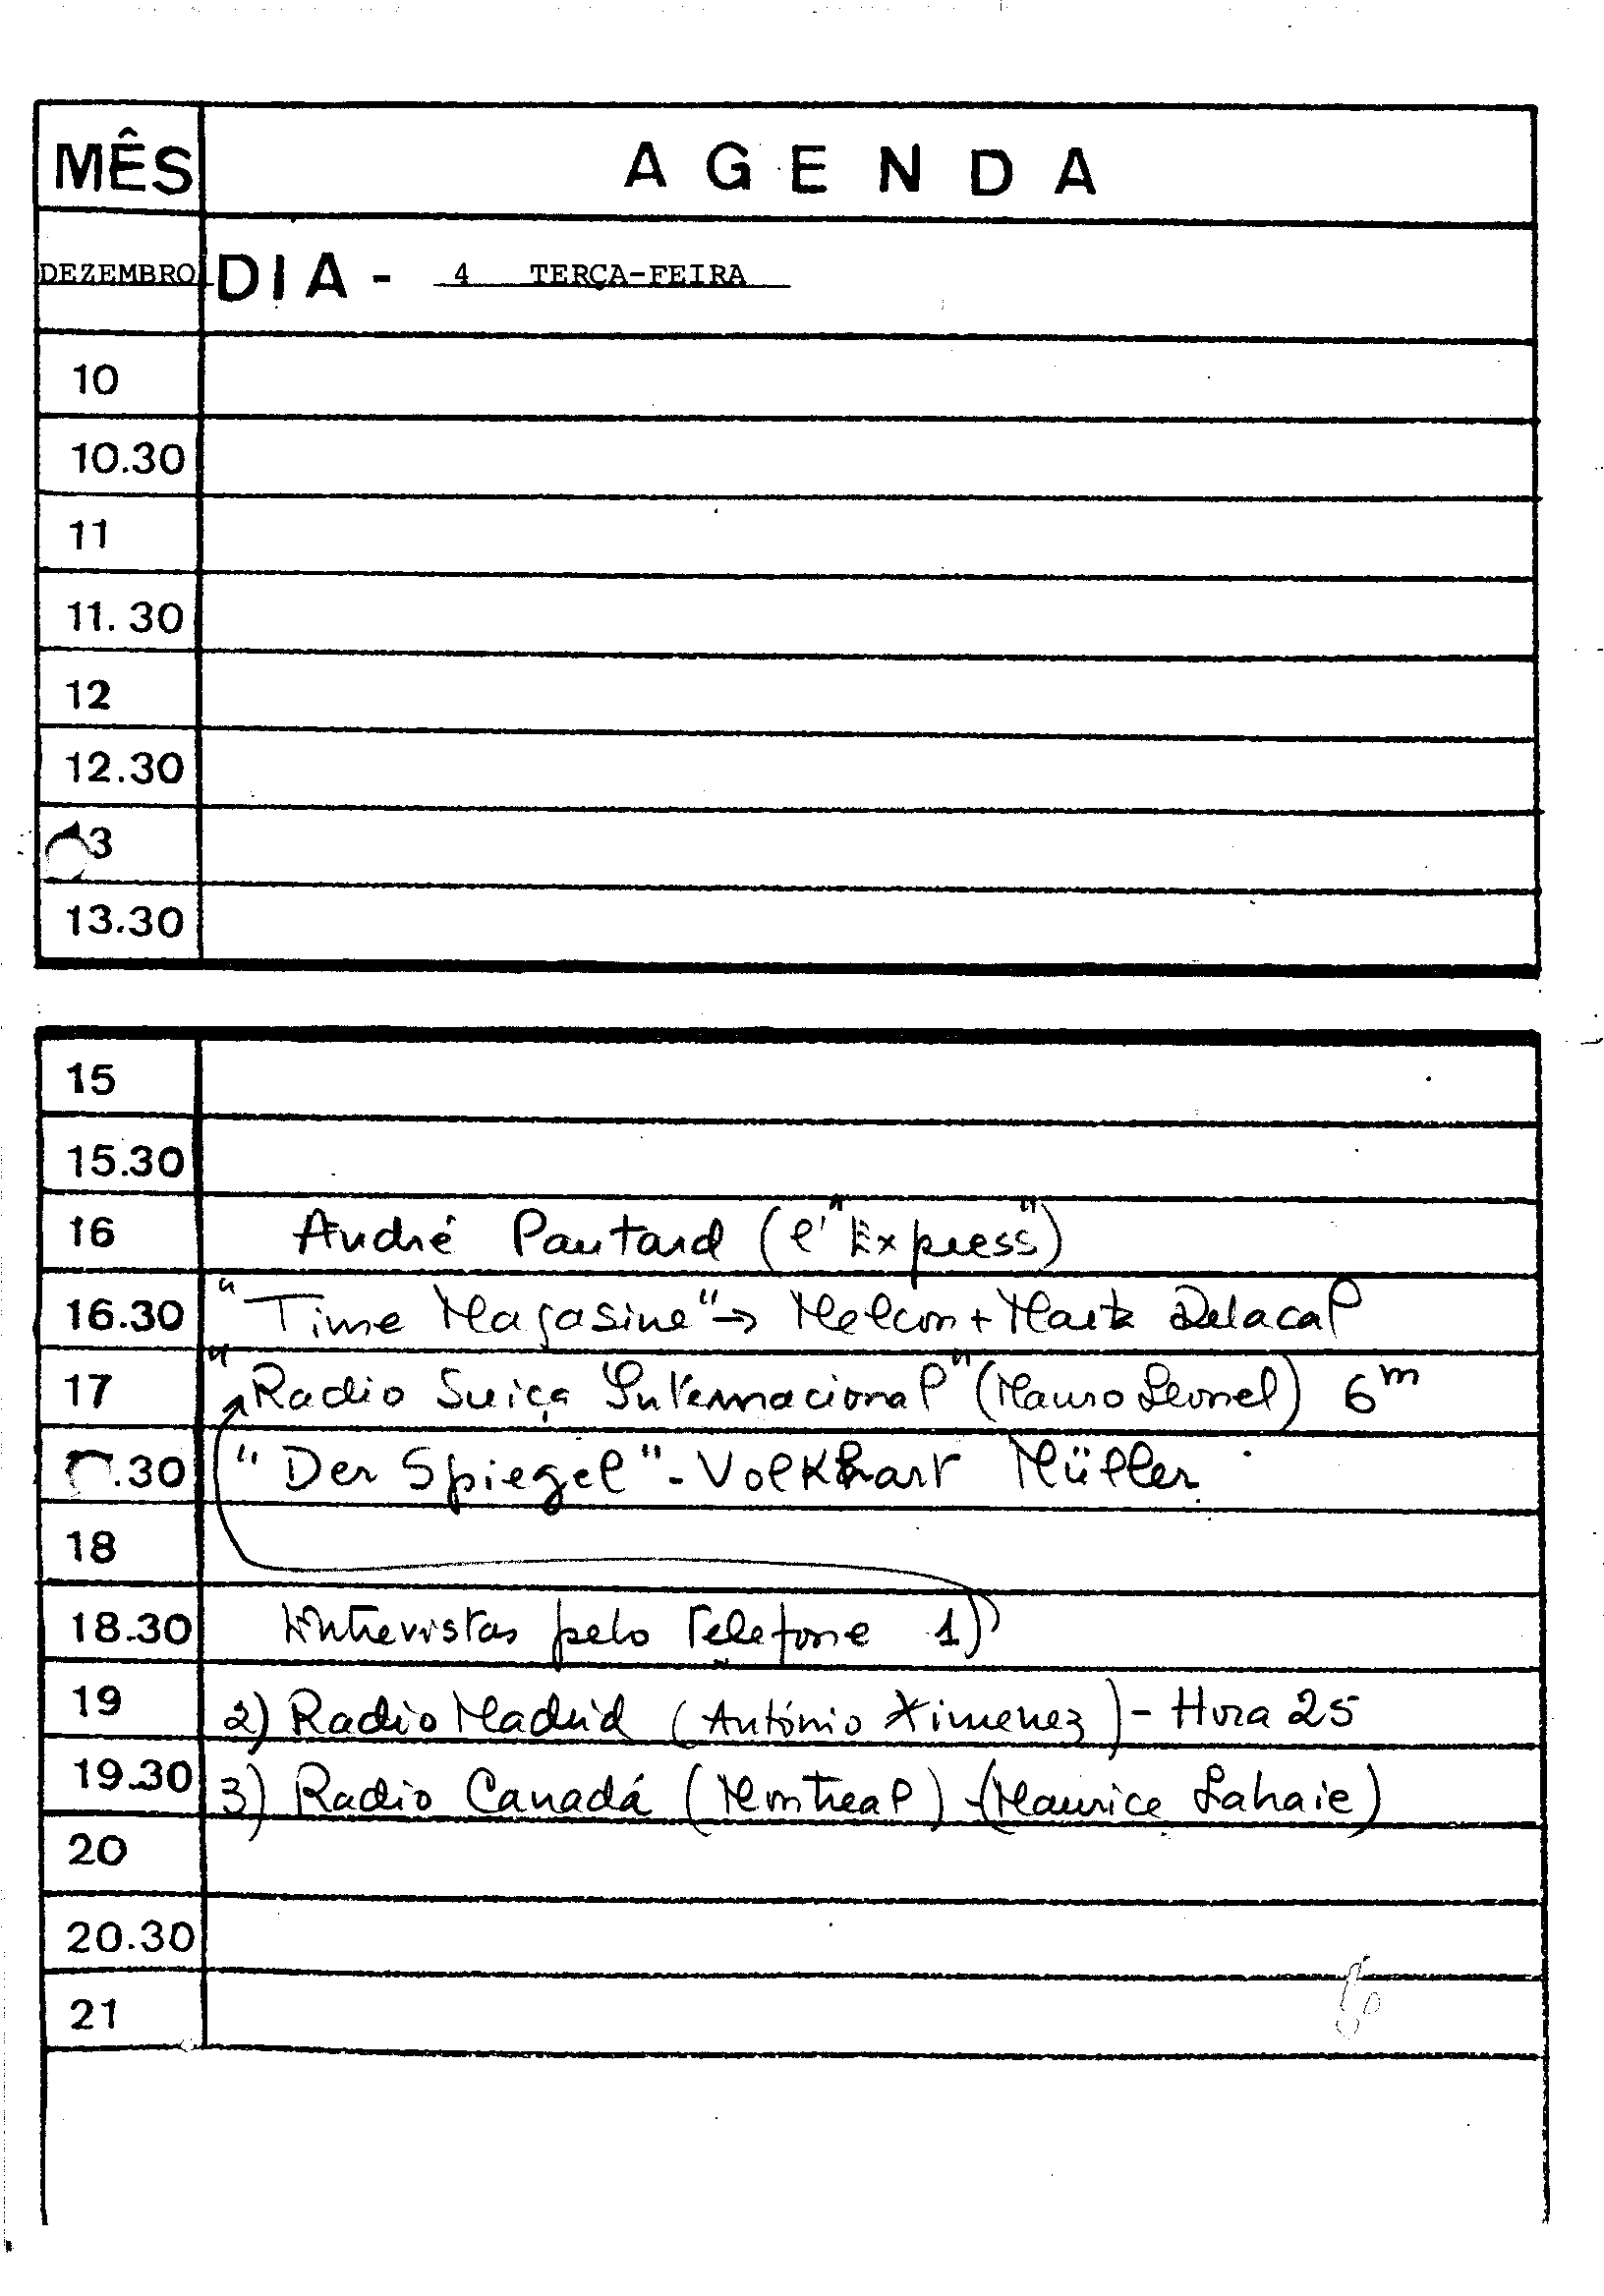 MÊS AGENDA
DEZEMBRO DIA - 4 TERÇA-FEIRA
10
10.30
11
11.30
12
12.30
3
13.30
15
15.30
16 André Pautard (l'"Express")
16.30 "Time Magasine" → Melcon + Mark Delacal
17 "Radio Suiça Internacional" (Mauro Leonel) 6m
.30 "Der Spiegel" - Volkhart Müller
18
18.30 Entrevistas pelo Telefone 1)
19 2) Radio Madrid (António Ximenez) - Hora 25
19.30 3) Radio Canadá (Montreal) - (Maurice Lahaie)
20
20.30
21